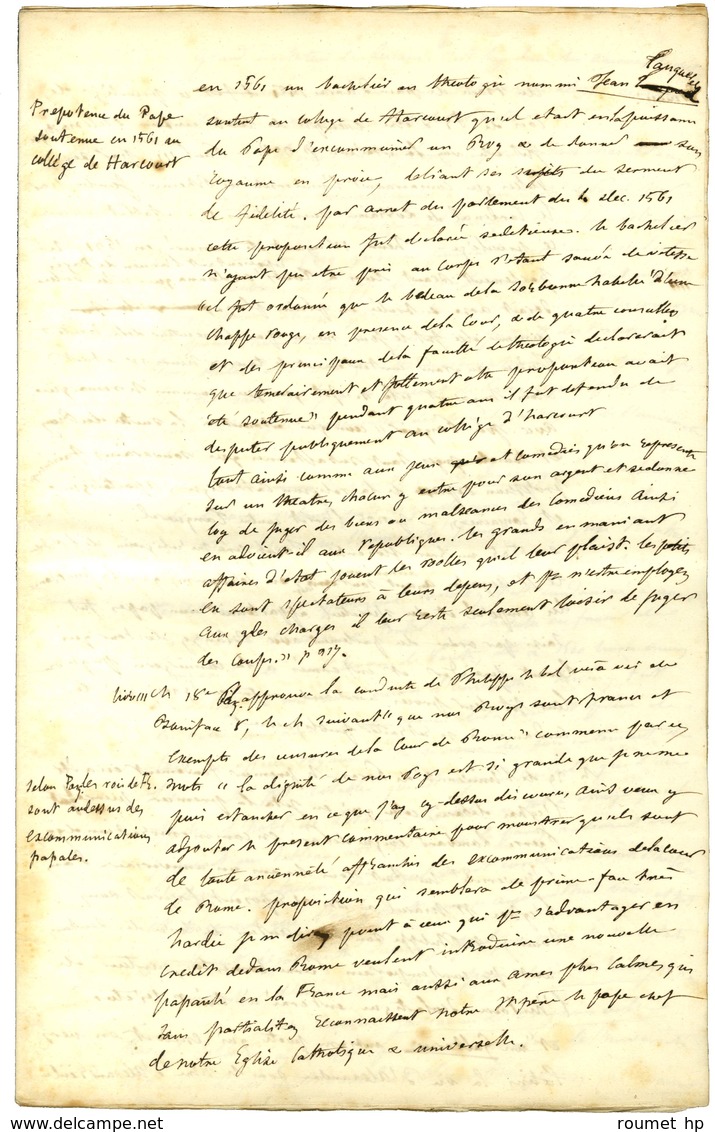 Tanquerel
en 1561 un bachelier en theologie nommé Jean
Prepotence du Pape
soutenue en 1561 au
collége de Harcourt
soutint au college de Harcourt qu'il etait en la puissance
du Pape d'excommunier un Roy & de donner son
royaume en proie, deliant ses sujets du serment
de fidelité. par arret du parlement du 4 dec. 1561
cette proposition fut declarée seditieuse. le bachelier
n'ayant pu etre pris au corps s'etant sauvé de vitesse
il fut ordonné que le bedeau de la Sorbonne habillé d'une
chappe rouge, en presence de la Cour, & de quatre conseillers
et des principaux de la faculté de theologie declarerait
que temerairement et follement cette proposition avait
été soutenue" pendant quatre ans il fut defendu de
disputer publiquement au collége d'harcourt
tout ainsi comme aux jeux et comedies qu'on represente
sur un theatre, chacun y entre pour son argent et se donne
loy de juger des biens ou malseances des comediens ainsi
en advient-il aux republiques. les grands en maniant
affaires d'etat jouent les roolles qu'il leur plaist. les petits
en sont spectateurs à leurs depens, et pr n'estre employez
aux gdes charges il leur reste seulement loisir de juger
des coups." p 917.
livre III ch 18e Paq. approuve la conduite de Philippe le bel vis à vis de
Boniface 8, le ch suivant "que nos Roys sont francs et
exempts des censures de la Cour de Rome" commence par ces
mots "la dignité de nos Roys est si grande que je ne me
puis estancher en ce que j'ay cy-dessus discouru, ains veux y
adjouter le present commentaire pour monstrer qu'ils sont
de toute ancienneté affranchis des excommunications de la cour
de Rome. proposition qui semblera de prime-face tres
hardie je ne diray point à ceux qui pr s'advantager en
credit dedans Rome veulent introduire une nouvelle
papauté en la France mais aussi aux ames plus calmes qui
sans partialitez reconnaissent notre St père le pape chef
de notre Eglise Catholique & universelle.
selon Paq. les rois de Fr.
sont au dessus des
excommunications
papales.
delcampe.net
roumet hp